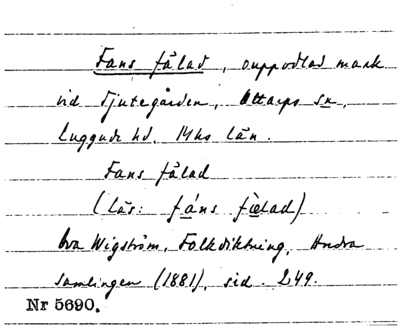 Fans fålad, ouppodlad mark
vid Tjutegården, Ottarps sn,
Luggude hd. Mhs län.
Fans fålad
(läs: fáns fœ̀lad)
Eva Wigström, Folkdiktning, Andra
samlingen (1881), sid. 249.
Nr 5690.